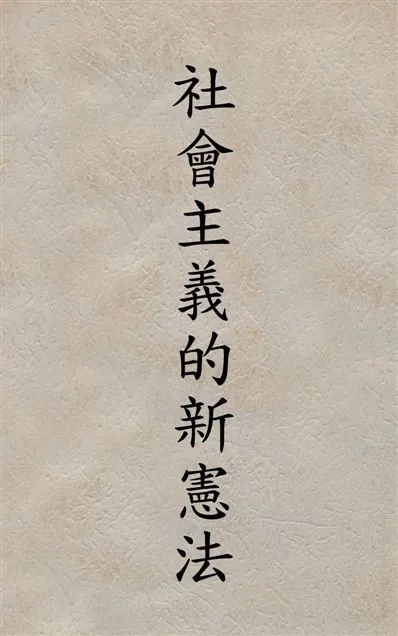 社會主義的新憲法